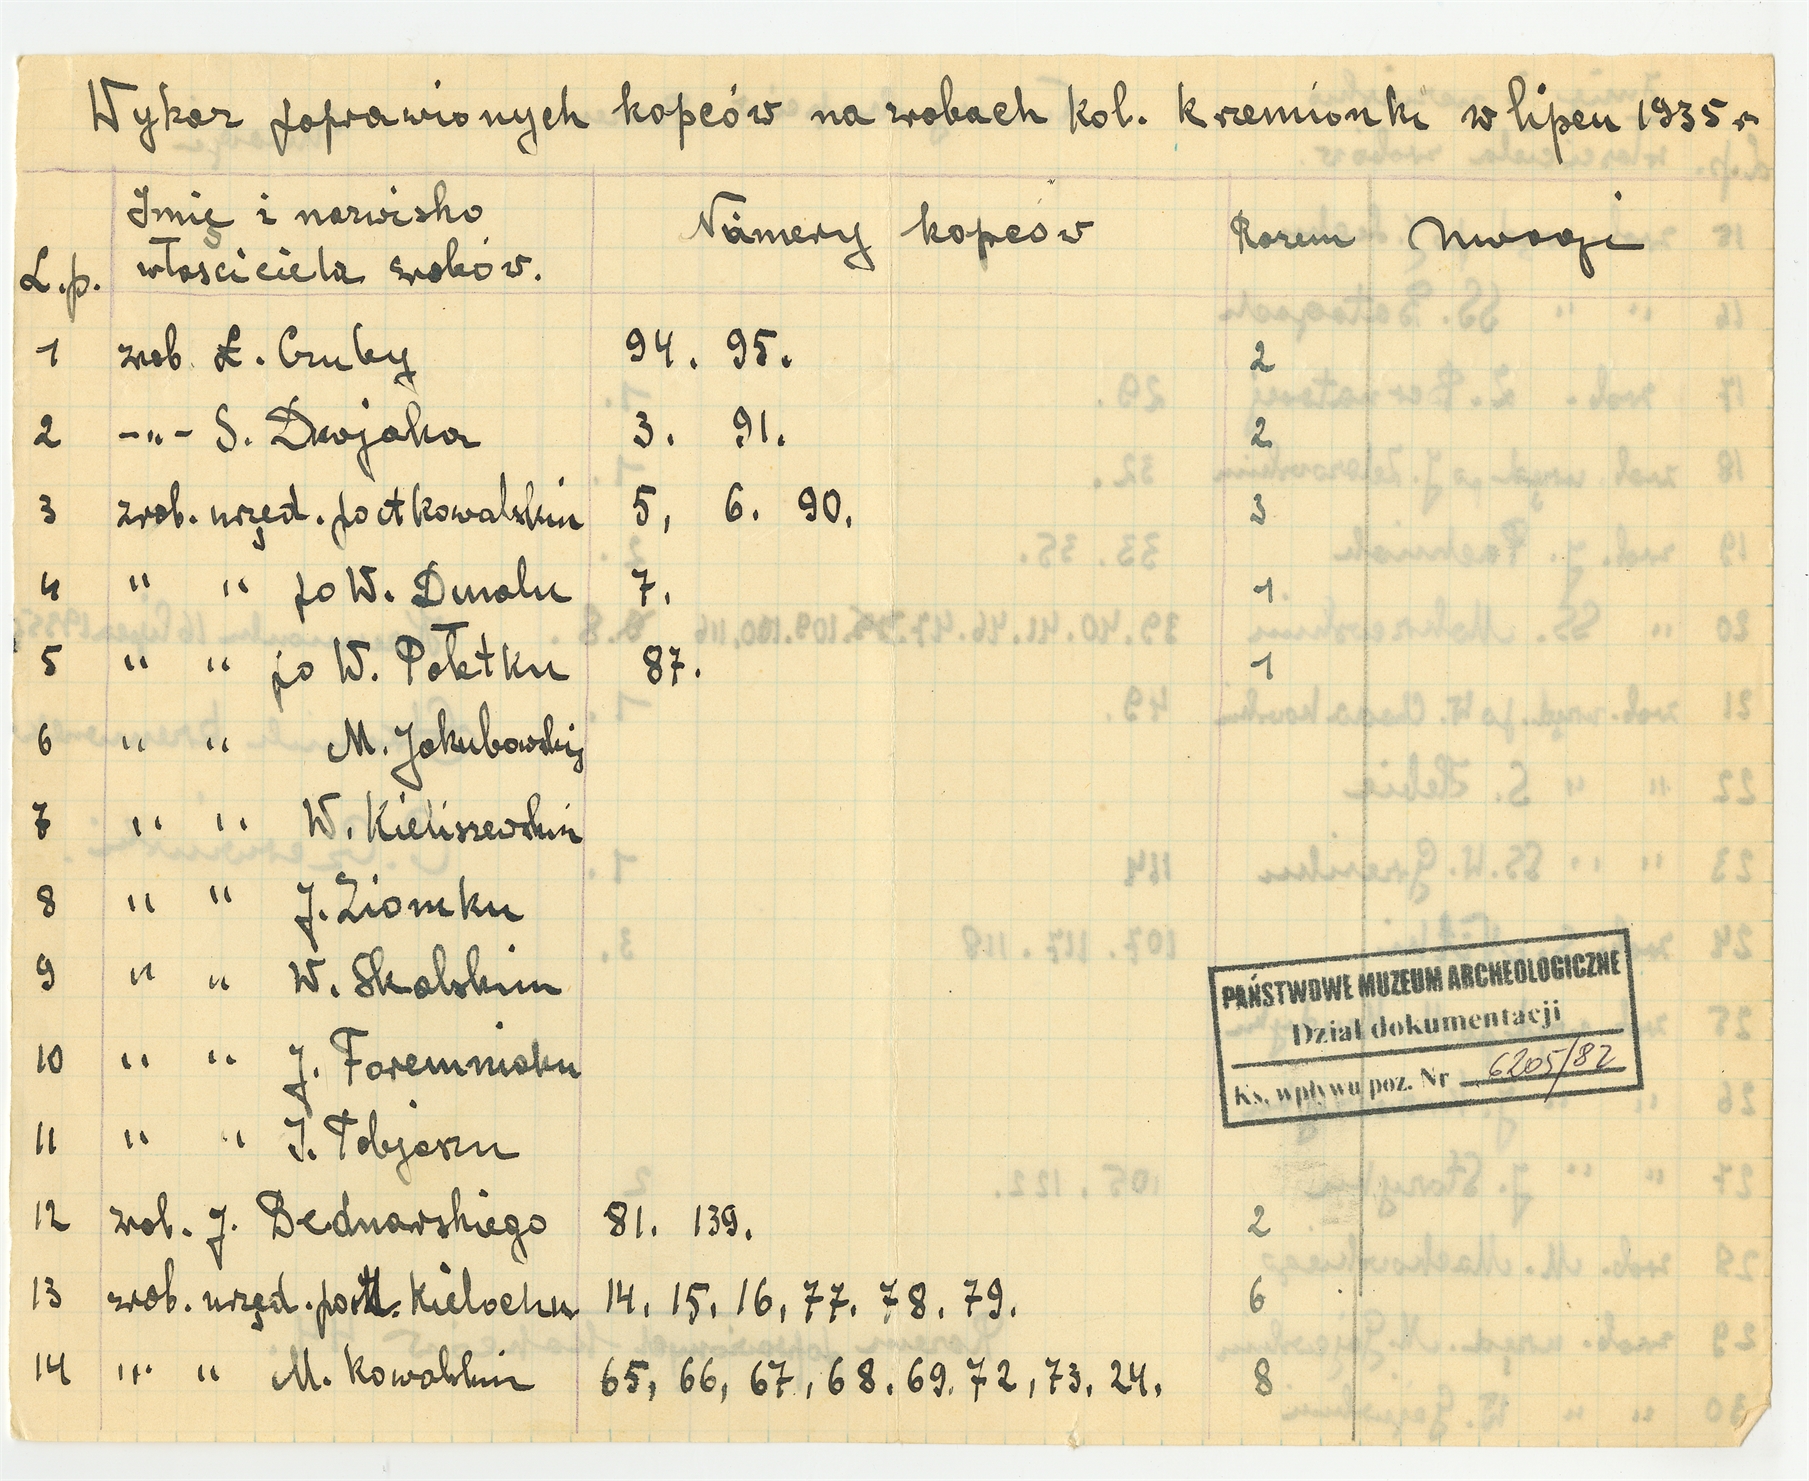 Wykaz poprawionych kopców na zrobach kol. Krzemionki w lipcu 1935 r.
L.p. Imię i nazwisko właściciela zrobów. Numery kopców Razem Uwagi
1 zrob. Ł. Gruby 94. 95. 2
2 -"- S. Dwojaka 3. 91. 2
3 zrob. urzęd. po A Kowalskim 5, 6. 90. 3
4 " " po W. Dunalu 7. 1
5 " " po W. Połetku 87. 1
6 " " M. Jakubowskiej
7 " " W. Kieliszewskim
8 " " J. Ziomku
9 " " W. Skalskim
10 " " J. Foremniaku
11 " " J. Tobjaszu
12 zrob. J. Bednarskiego 81. 139. 2
13 zrob. urzęd. po M. Kielochu 14. 15. 16, 77. 78. 79. 6
14 " " M. Kowalskim 65, 66, 67, 68. 69. 72, 73. 24. 8
PAŃSTWOWE MUZEUM ARCHEOLOGICZNE
Dział dokumentacji
Ks. wpływu poz. Nr 6205/82